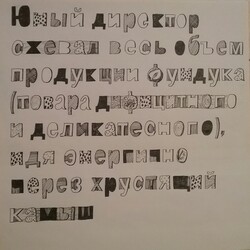 Юный директор
сжевал весь объем
продукции фундука
(товара дифицитного
и деликатесного),
идя энергично
через хрустящий
камыш